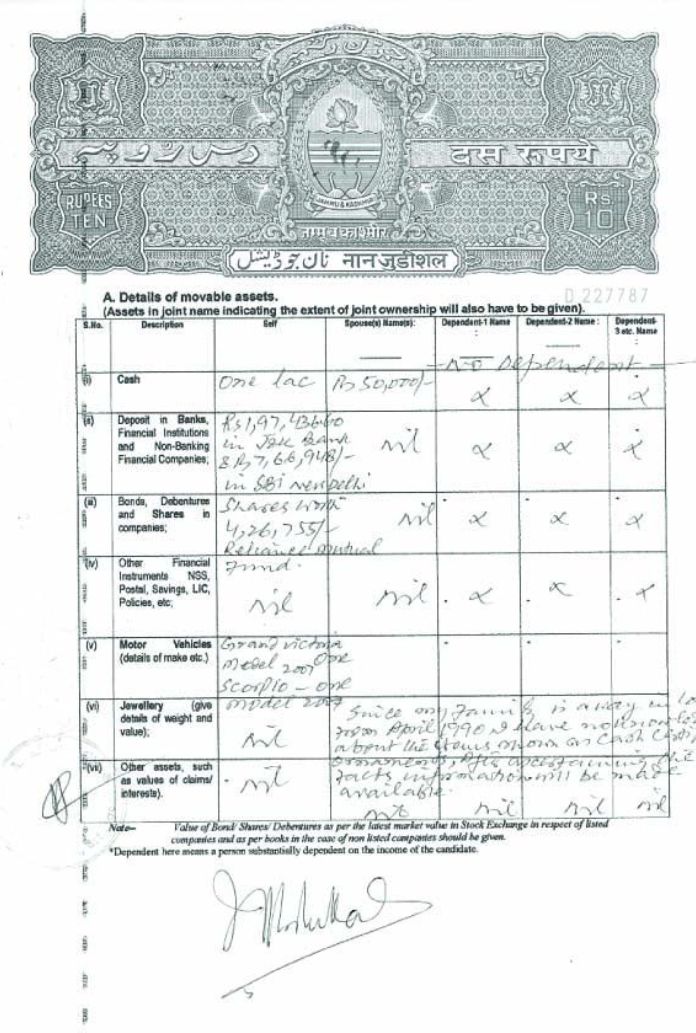 دس روپیہ
दस रूपये
RUPEES
TEN
Rs
10
JAMMU & KASHMIR
جموں کشمیر
जम्मू व काश्मीर
نان جوڈیشل नानजुडीशल
D 227787
A. Details of movable assets.
(Assets in joint name indicating the extent of joint ownership will also have to be given).
S.No. Description Self Spouse(s) Name(s): Dependent-1 Name : Dependent-2 Name : Dependent-3 etc. Name :
No Dependent
(i) Cash One lac Rs 50,000/- x x x
(ii) Deposit in Banks,
Financial Institutions
and Non-Banking
Financial Companies;
in J&K Bank
& Rs 7,66,948/-
in SBI New Delhi
nil x x x
(iii) Bonds, Debentures
and Shares in
companies;
Shares worth
4,26,755/-
Reliance Mutual
Fund.
nil x x x
(iv) Other Financial
Instruments NSS,
Postal, Savings, LIC,
Policies, etc;
nil nil x x x
(v) Motor Vehicles
(details of make etc.)
Grand Victoria
Model 2007 One
Scorpio – one
model 2007
(vi) Jewellery (give
details of weight and
value);
nil
Since my Family is away
from April 1990 I have no
about the items shown as Cash
ornaments, After ascertaining the
facts information will be made
available.
(vii) Other assets, such
as values of claims/
interests).
nil nil nil nil nil
Note– Value of Bond/ Shares/ Debentures as per the latest market value in Stock Exchange in respect of listed
companies and as per books in the case of non listed companies should be given.
*Dependent here means a person substantially dependent on the income of the candidate.